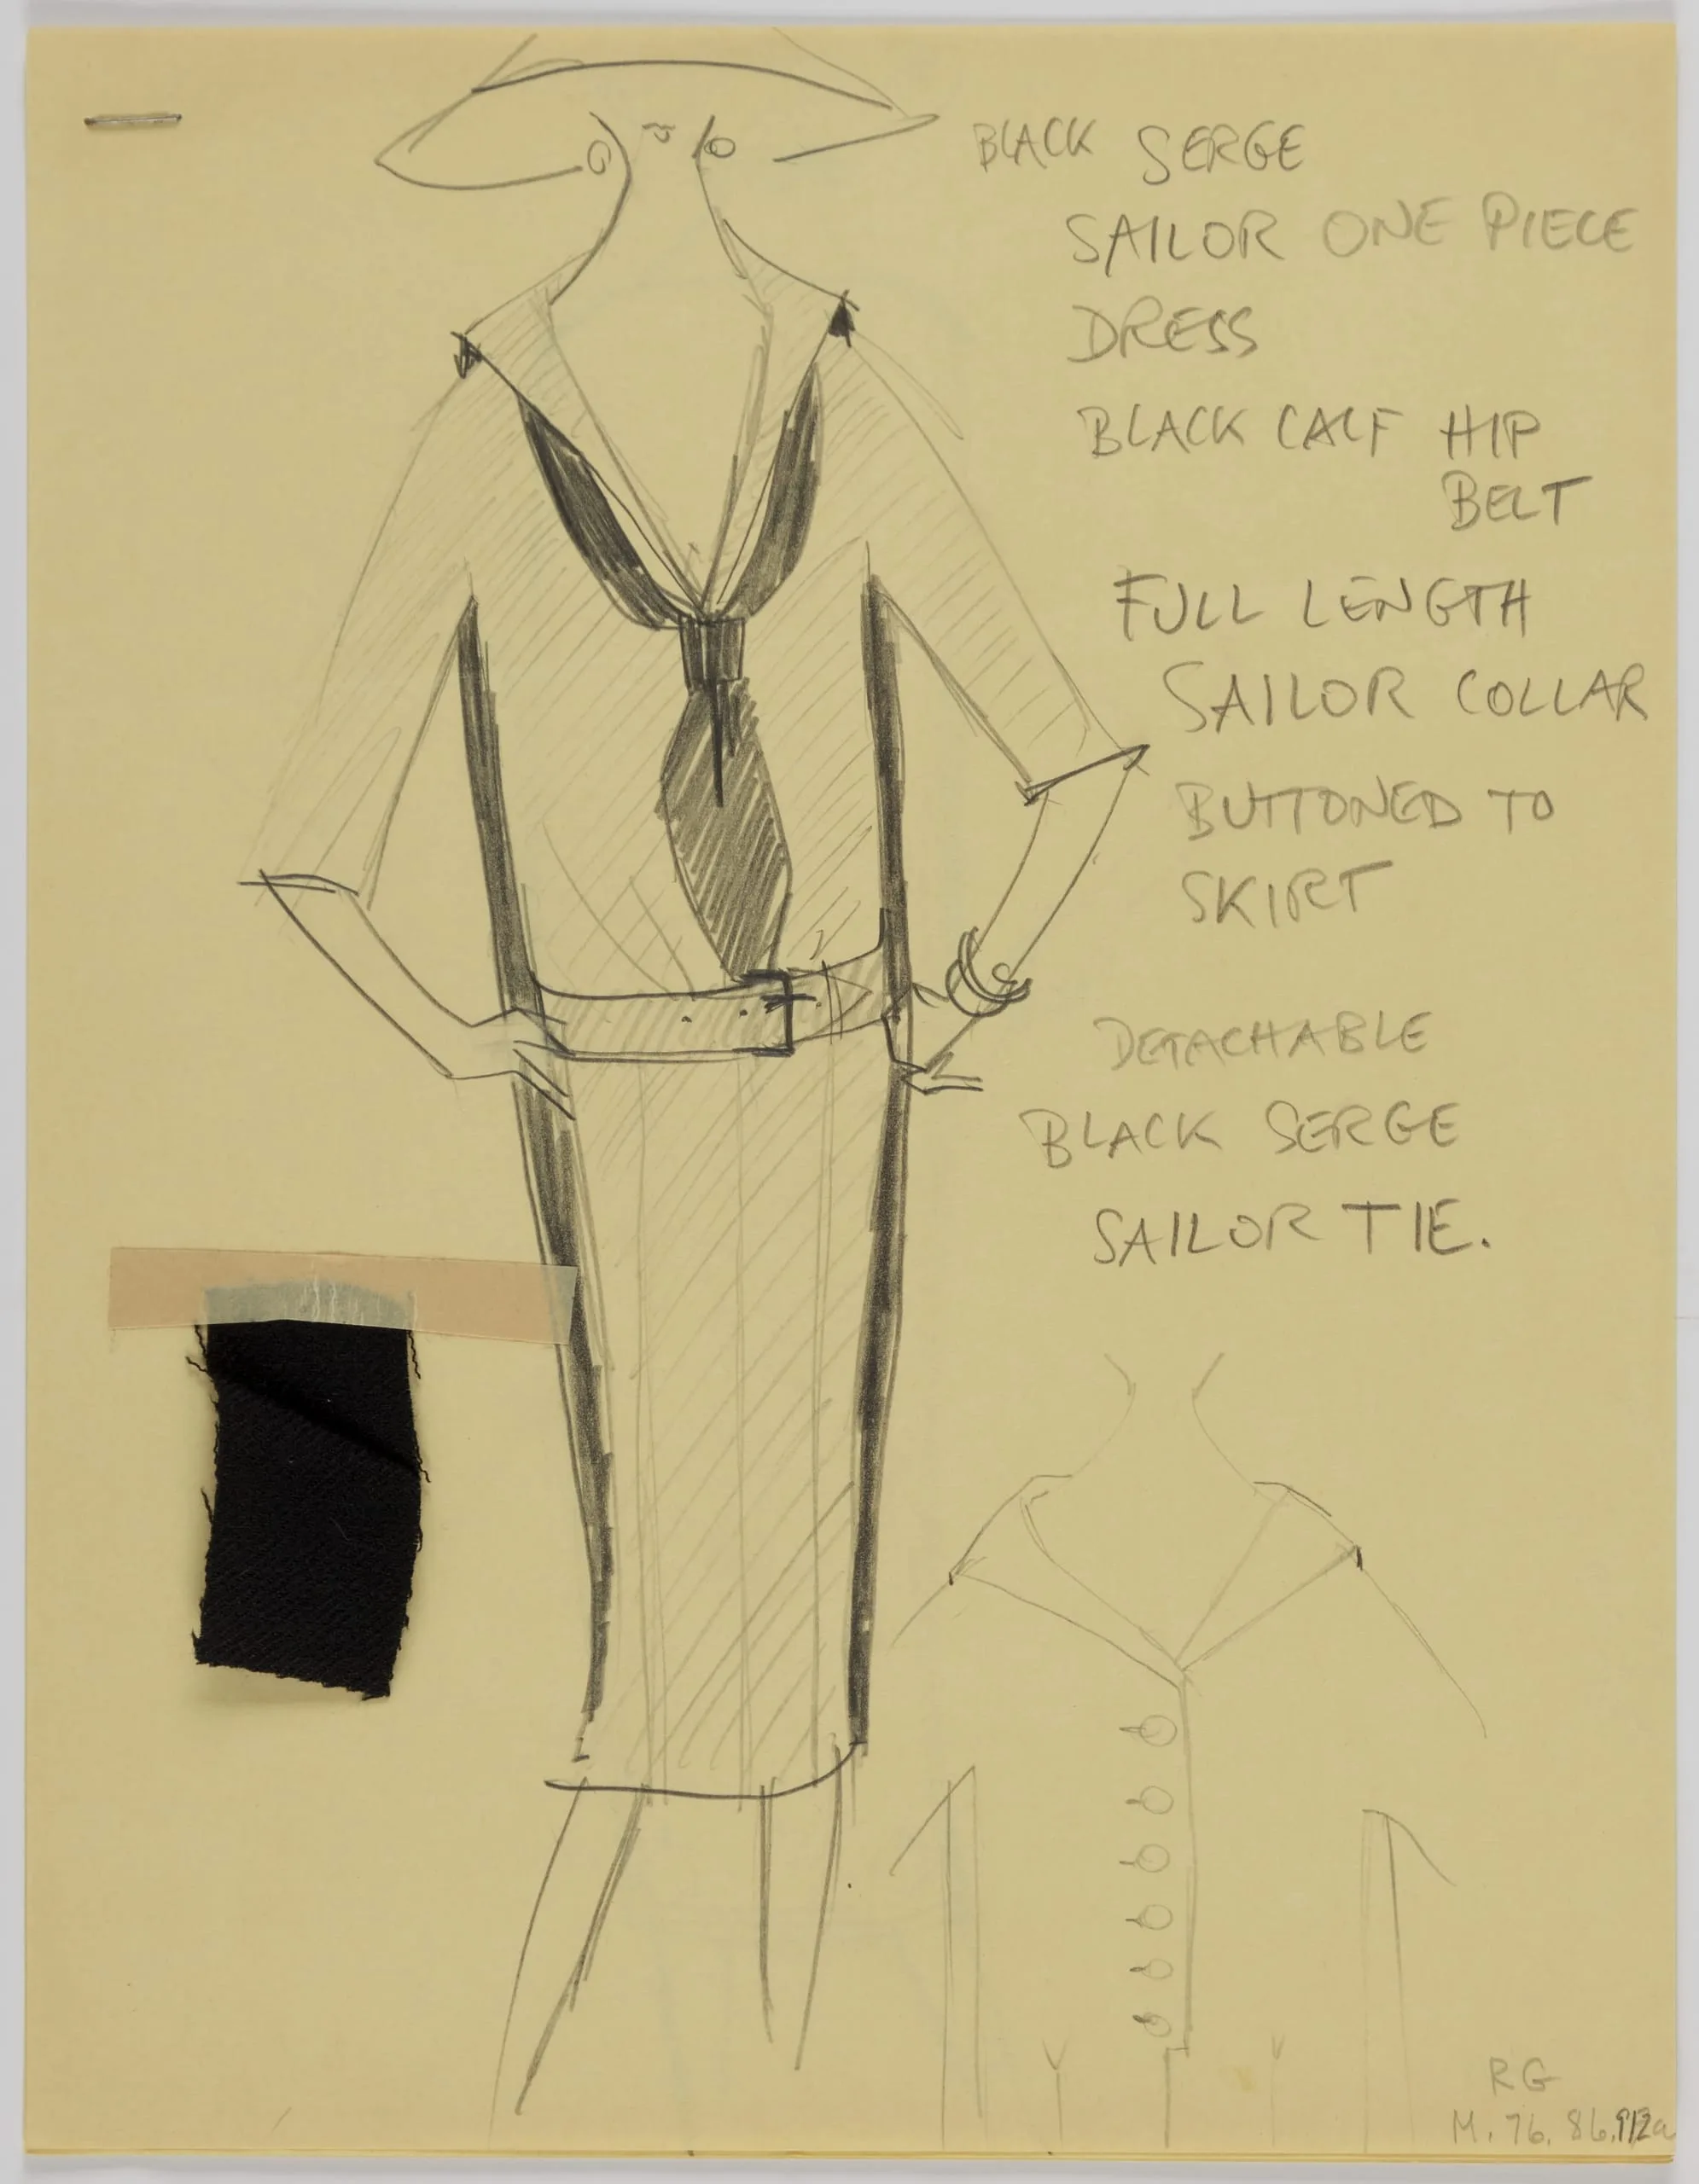 BLACK SERGE
SAILOR ONE PIECE
DRESS
BLACK CALF HIP
BELT
FULL LENGTH
SAILOR COLLAR
BUTTONED TO
SKIRT
DETACHABLE
BLACK SERGE
SAILOR TIE.
RG
M. 76. 86.912a